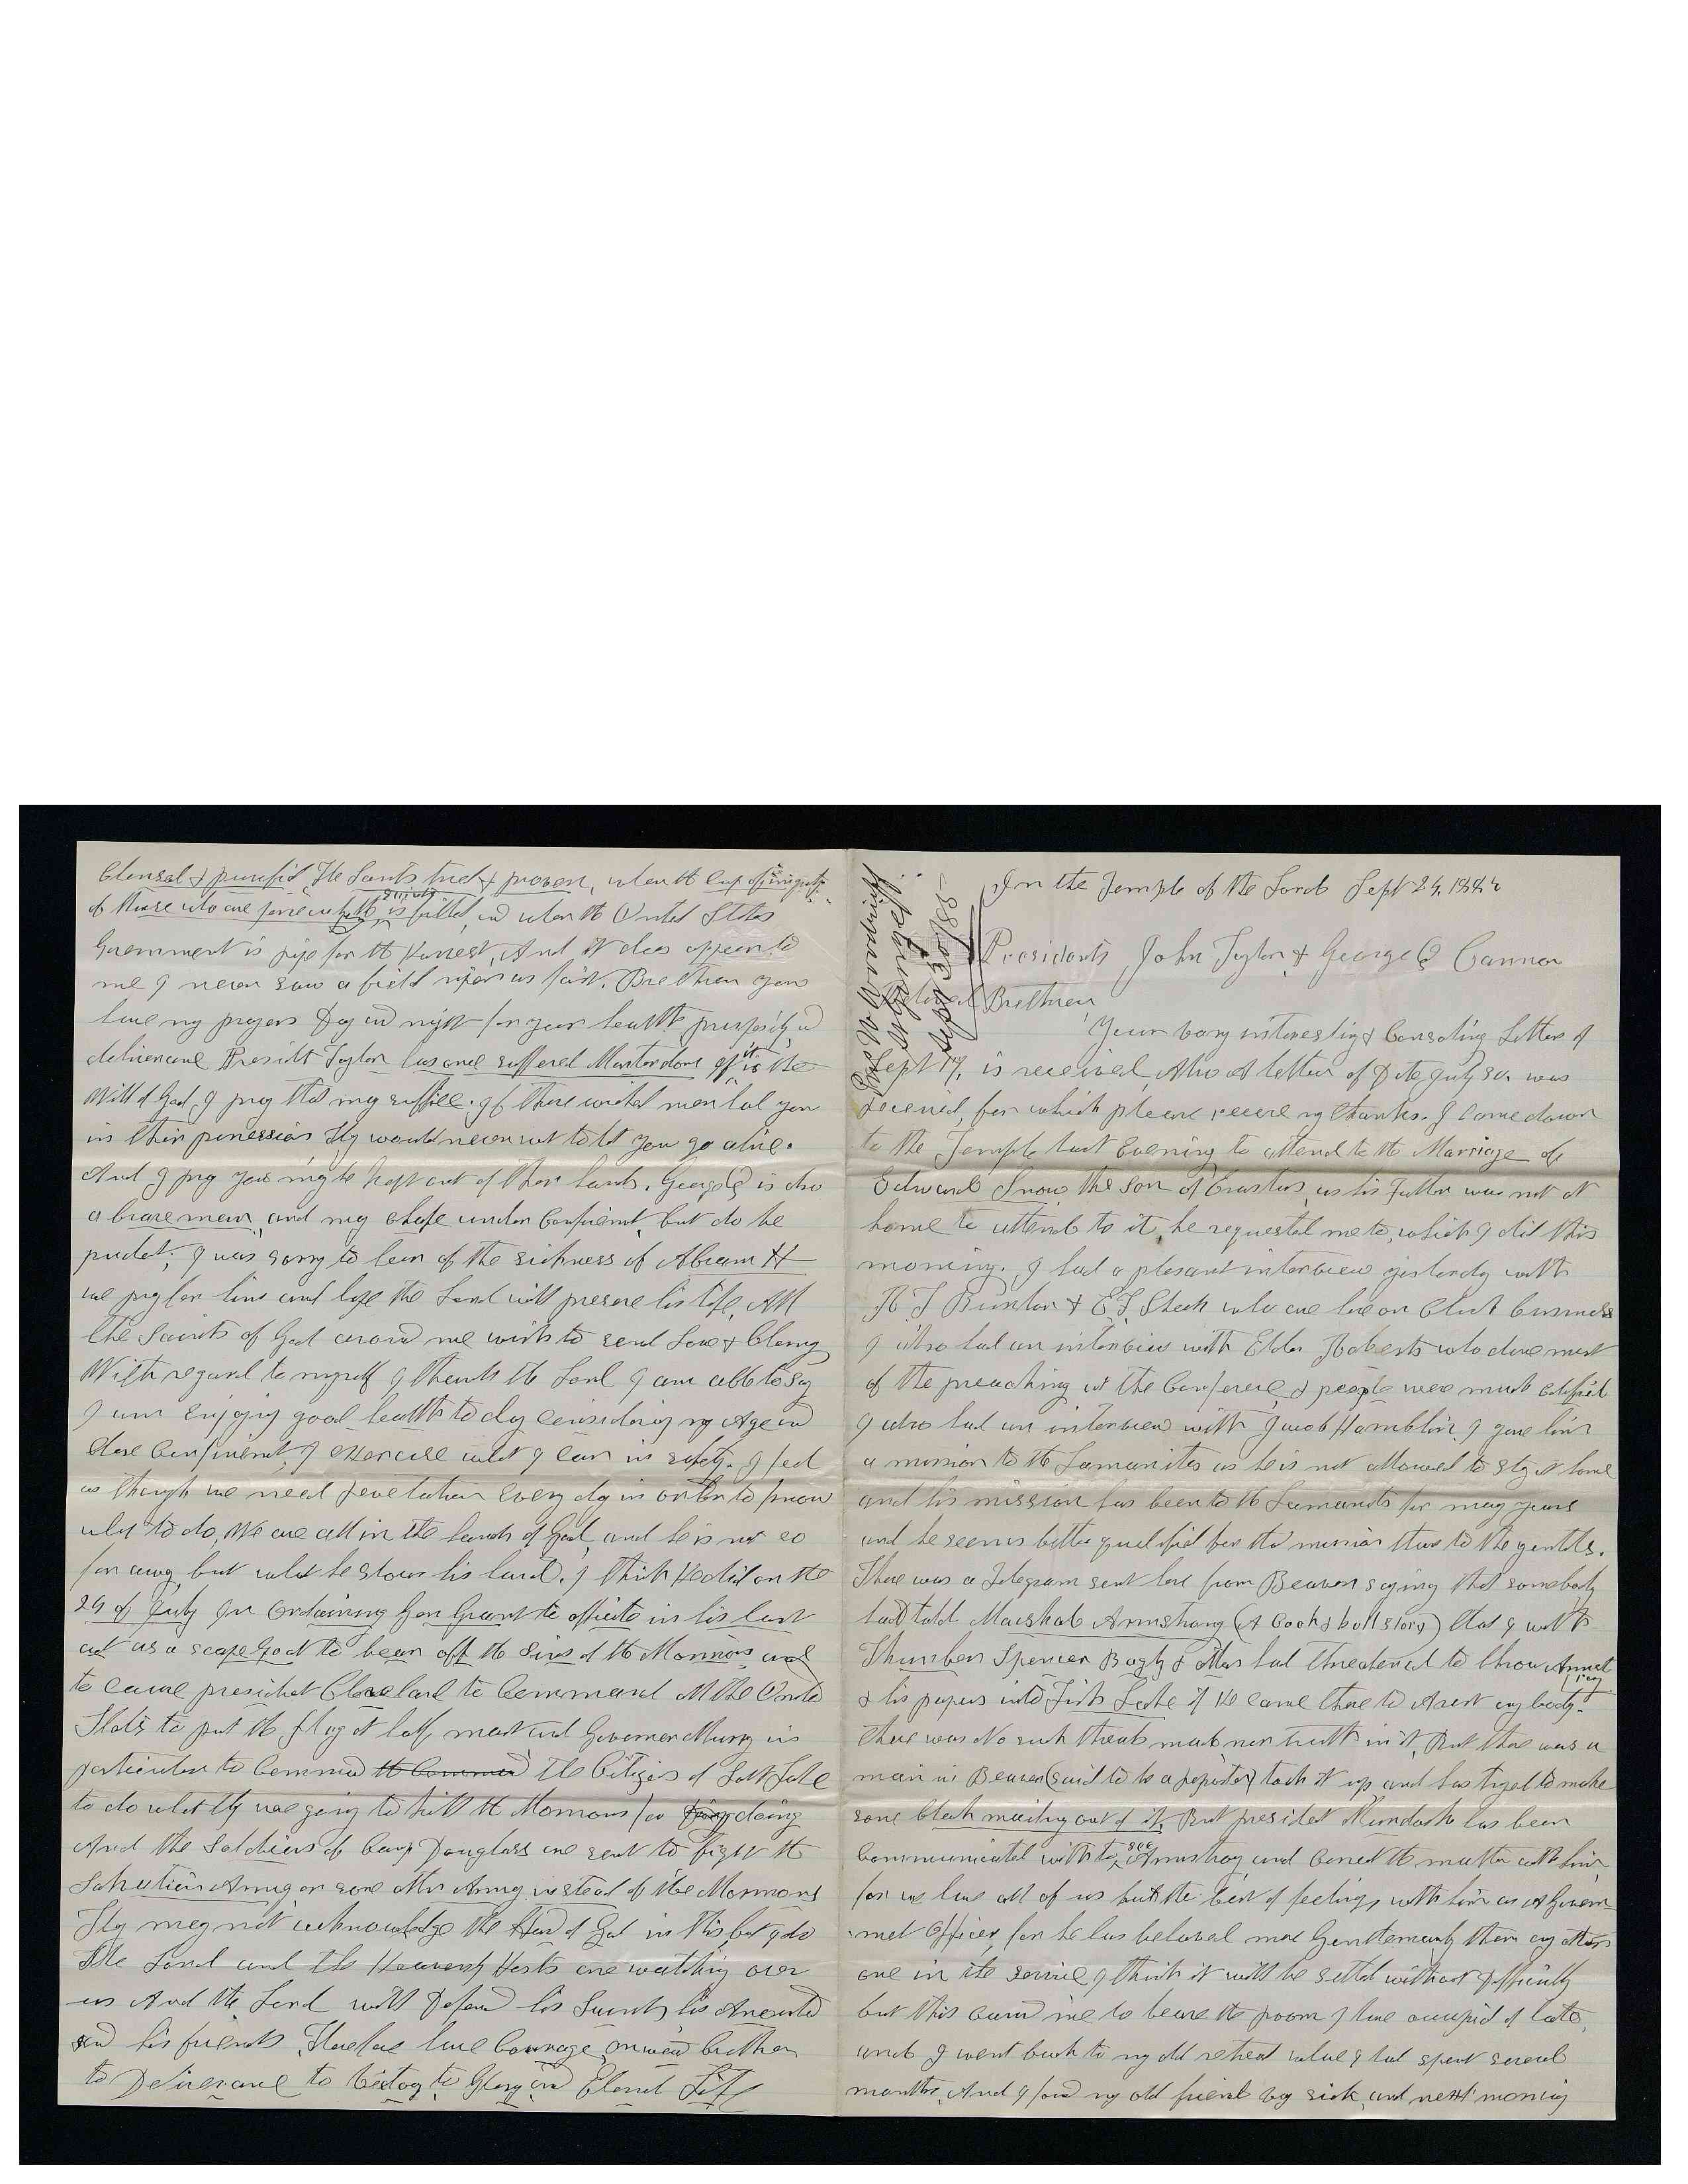 In the Temple of the Lord Sept 24, 1885
Presidents John Taylor & George Q Cannon
Beloved Brethren
Your vary interesting & Consoling Letter of
Sept 17, is received, Also A letter of Date July 30. was
received, for which please receive my thanks. I Come down
to the Temple last Evening to attend to the Marriage of
Edward Snow the Son of Erastus, as his Father was not at
home to attend to it, he requested me to, which I did this
morning. I had a plesant interview yisterday with
who are here on Church business
I also had an interview with Elder Roberts who done most
of the preaching at the Conference, & people were much edified
I also had an interview with Jacob Hamblin, I gave him
a mission to the Lamanites as he is not allowed to stay at home
and his mission has been to the Lamanites for many years
and he seems better qualified for that mission than to the gentiles.
There was a Telegram sent here from Beaver saying that somebody
had told Marshal Armstrong (A Cock & bull story) that I with
Thurber Spencer Bagly & others had threatened to throw Armst
rong
& his papers into Fish Lake if He came there to Arest any body.
there was No such threats made nor truth in it, But there was a
man in Beaver (said to be a reporter) took it up and has tryed to make
some black mailing out of it, But president Murdock has been
Communicated with to see Armstrong and Correct the matter with him
for we have all of us but the best of feelings with him as A Govern
-ment Officer, for he has behaved more Gentlemanly than any other
one in the servise, I think it will be settled without difficulty
but this caused me to leave the room I have occupied of late,
and I went back to my old retreat whare I had spent several
months, And I found my old friend vary sick, and next morning
Pres W Woodruff
St George
Sept 30/85
Clensed & purified, The Saints tried & proven, when the cup of iniquity
of those who are persecuting the Saints is filled, and when the United States
Government is ripe for the Harvest, And it does appear to
me I never saw a field ripen as fast. Brethren you
have my prayers Day and night for your health prosperity and
deliverance Presidt Taylor has once suffered Marterdom & if it is the
Will of God, I pray that may suffice. If these wicked men had you
in their possession They would never want to let you go alive.
And I pray you may be kept out of their hands. George Q is also
a brave man, and may chafe under Confinement, but do be
prudent; I was sorry to learn of the sickness of Abram H
we pray for him and hope the Lord will preserve his life, All
the Saints of God around me wish to send Love & Blessing
With regard to myself I thank the Lord I am able to say
I am Enjoying good health to day considering my Age and
close Confinement, I exercise what I can in safety. I feel
as though we need revelation Every day in order to know
what to do, We are all in the hands of God, and he is not so
far away but what he shows his hand. I think He did on the
29 of July for Ordaining Gen Grant to officiate in his last
act as a scape Goat to bear off the Sins of the Mormons and
to cause president Cleveland to Command All the United
States to put the flag at half mast and Governor Murry in
particular to Command the Command the Citizens of Salt Lake
to do what they was going to kill the Mormons for doing
And the Soldiers of Camp Douglass are sent to fight the
Salvation Army or some other Army instead of the Mormons
They may not acknowledge the Hand of God in this but I do
The Lord and the Heavenly Hosts are watching over
us And the Lord will Defend his Saints, his Anointed
and his friends, Therefore have Courage, onward brethren
to Deliverance to Victory to Glory and Eternal Life